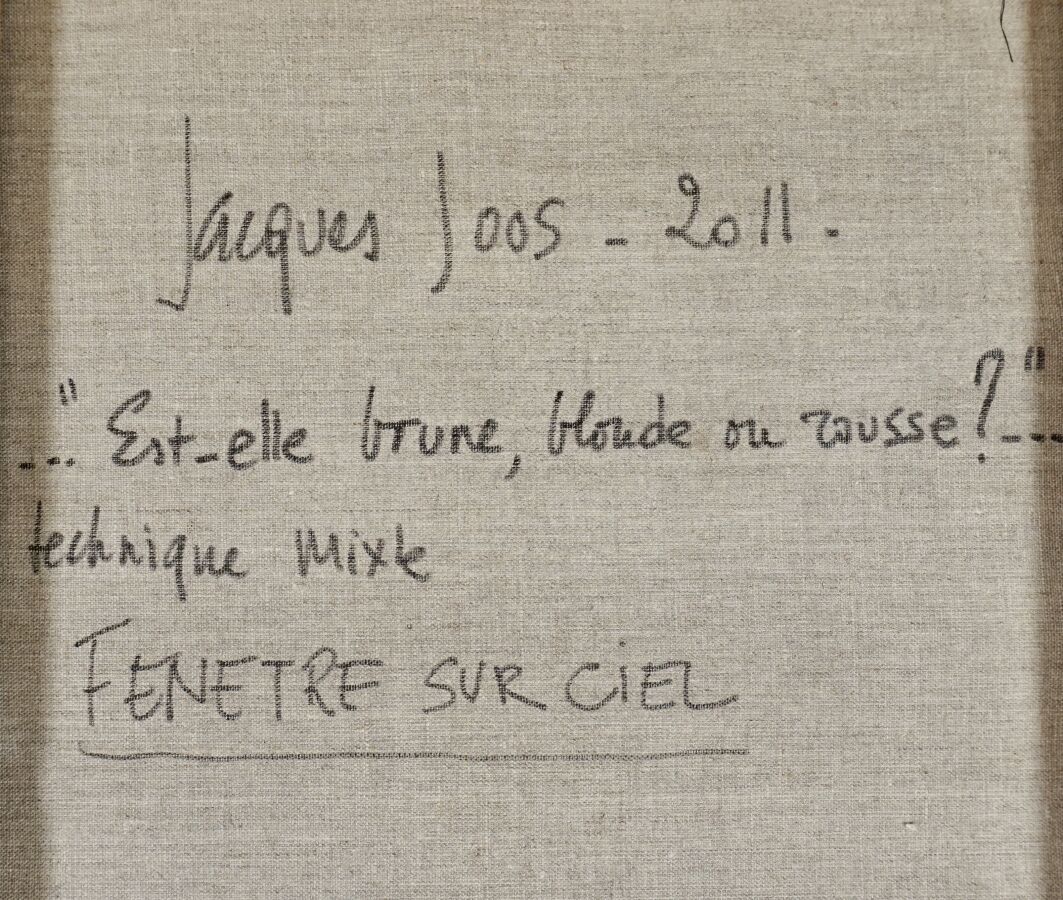 Jacques Joos - 2011.
..." Est-elle brune, blonde ou rousse? "...
technique mixte
FENETRE SUR CIEL